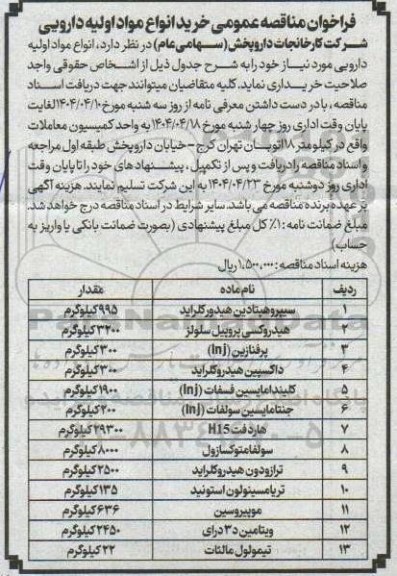 فراخوان مناقصه عمومی خرید انواع مواد اولیه دارویی
شرکت کارخانجات داروپخش (سهامی عام) در نظر دارد، انواع مواد اولیه
دارویی مورد نیاز خود را به شرح جدول ذیل از اشخاص حقوقی واجد
صلاحیت خریداری نماید. کلیه متقاضیان میتوانند جهت دریافت اسناد
مناقصه، با در دست داشتن معرفی نامه از روز سه شنبه مورخ ۱۴۰۴/۰۴/۱۰ لغایت
پایان وقت اداری روز چهار شنبه مورخ ۱۴۰۴/۰۴/۱۸ به واحد کمیسیون معاملات
واقع در کیلومتر ۱۸ اتوبان تهران کرج - خیابان داروپخش طبقه اول مراجعه
و اسناد مناقصه را دریافت و پس از تکمیل، پیشنهاد های خود را تا پایان وقت
اداری روز دوشنبه مورخ ۱۴۰۴/۰۴/۲۳ به این شرکت تسلیم نمایند. هزینه آگهی
بر عهده برنده مناقصه می باشد. سایر شرایط در اسناد مناقصه درج خواهد شد.
مبلغ ضمانت نامه: ۱٪ کل مبلغ پیشنهادی (بصورت ضمانت بانکی یا واریز به
حساب)
هزینه اسناد مناقصه: ۱,۵۰۰,۰۰۰ ریال
ردیف نام ماده مقدار
۱ سیپروهپتادین هیدورکلراید ۹۹۵ کیلوگرم
۲ هیدروکسی پروپیل سلولز ۳۲۰۰ کیلوگرم
۳ پرفنازین (Inj) ۳۰۰ کیلوگرم
۴ داکسپین هیدروکلراید ۳۰۰ کیلوگرم
۵ کلیندامایسین فسفات (Inj) ۱۹۰۰ کیلوگرم
۶ جنتامایسین سولفات (Inj) ۲۰۰ کیلوگرم
۷ هاردفت H15 ۲۹۳۰۰ کیلوگرم
۸ سولفامتوکسازول ۸۰۰۰ کیلوگرم
۹ ترازودون هیدروکلراید ۲۵۰۰ کیلوگرم
۱۰ تریامسینولون استونید ۱۳۵ کیلوگرم
۱۱ موپیروسین ۶۳۶ کیلوگرم
۱۲ ویتامین د۳ درای ۲۴۵۰ کیلوگرم
۱۳ تیمولول مالئات ۲۲ کیلوگرم